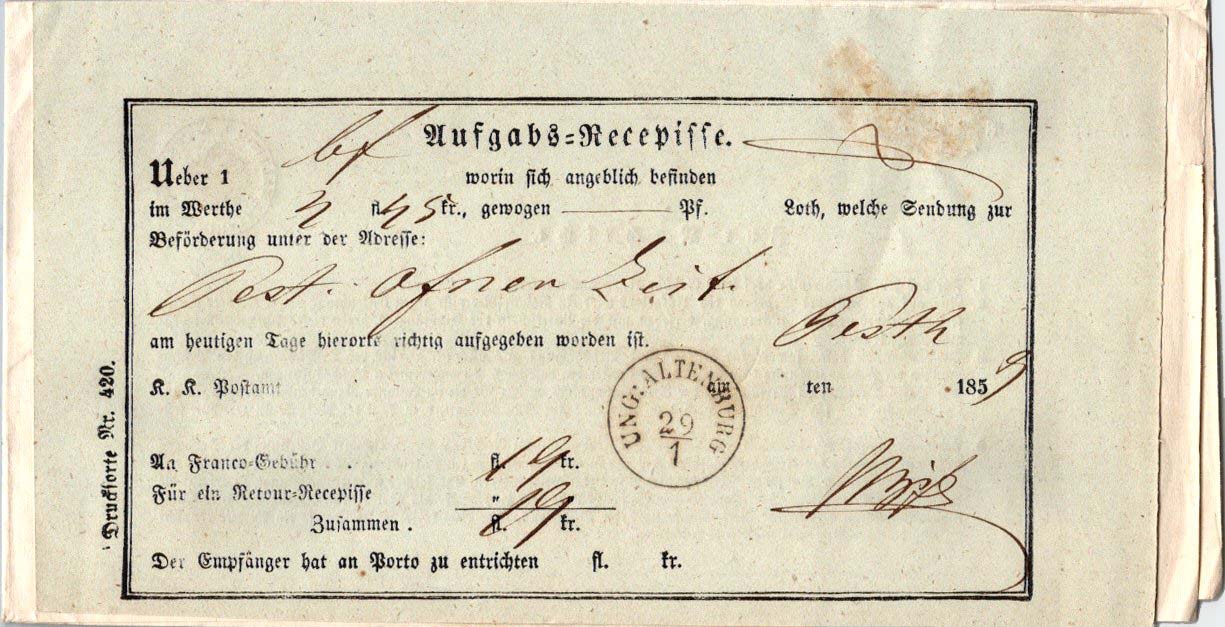 Aufgabs=Recepisse.
Ueber 1 bf worin sich angeblich befinden
im Werthe fl. 45 kr., gewogen Pf. Loth, welche Sendung zur
Beförderung unter der Adresse:
Pest. Ofner Zeit.
Pesth
am heutigen Tage hierorts richtig aufgegeben worden ist.
K. K. Postamt am ten 1859
UNG: ALTENBURG
29
1
An Franco=Gebühr . fl. 19 kr.
Für ein Retour=Recepisse "
Zusammen . fl. 19 kr.
Der Empfänger hat an Porto zu entrichten fl. kr.
Drucksorte Nr. 420.